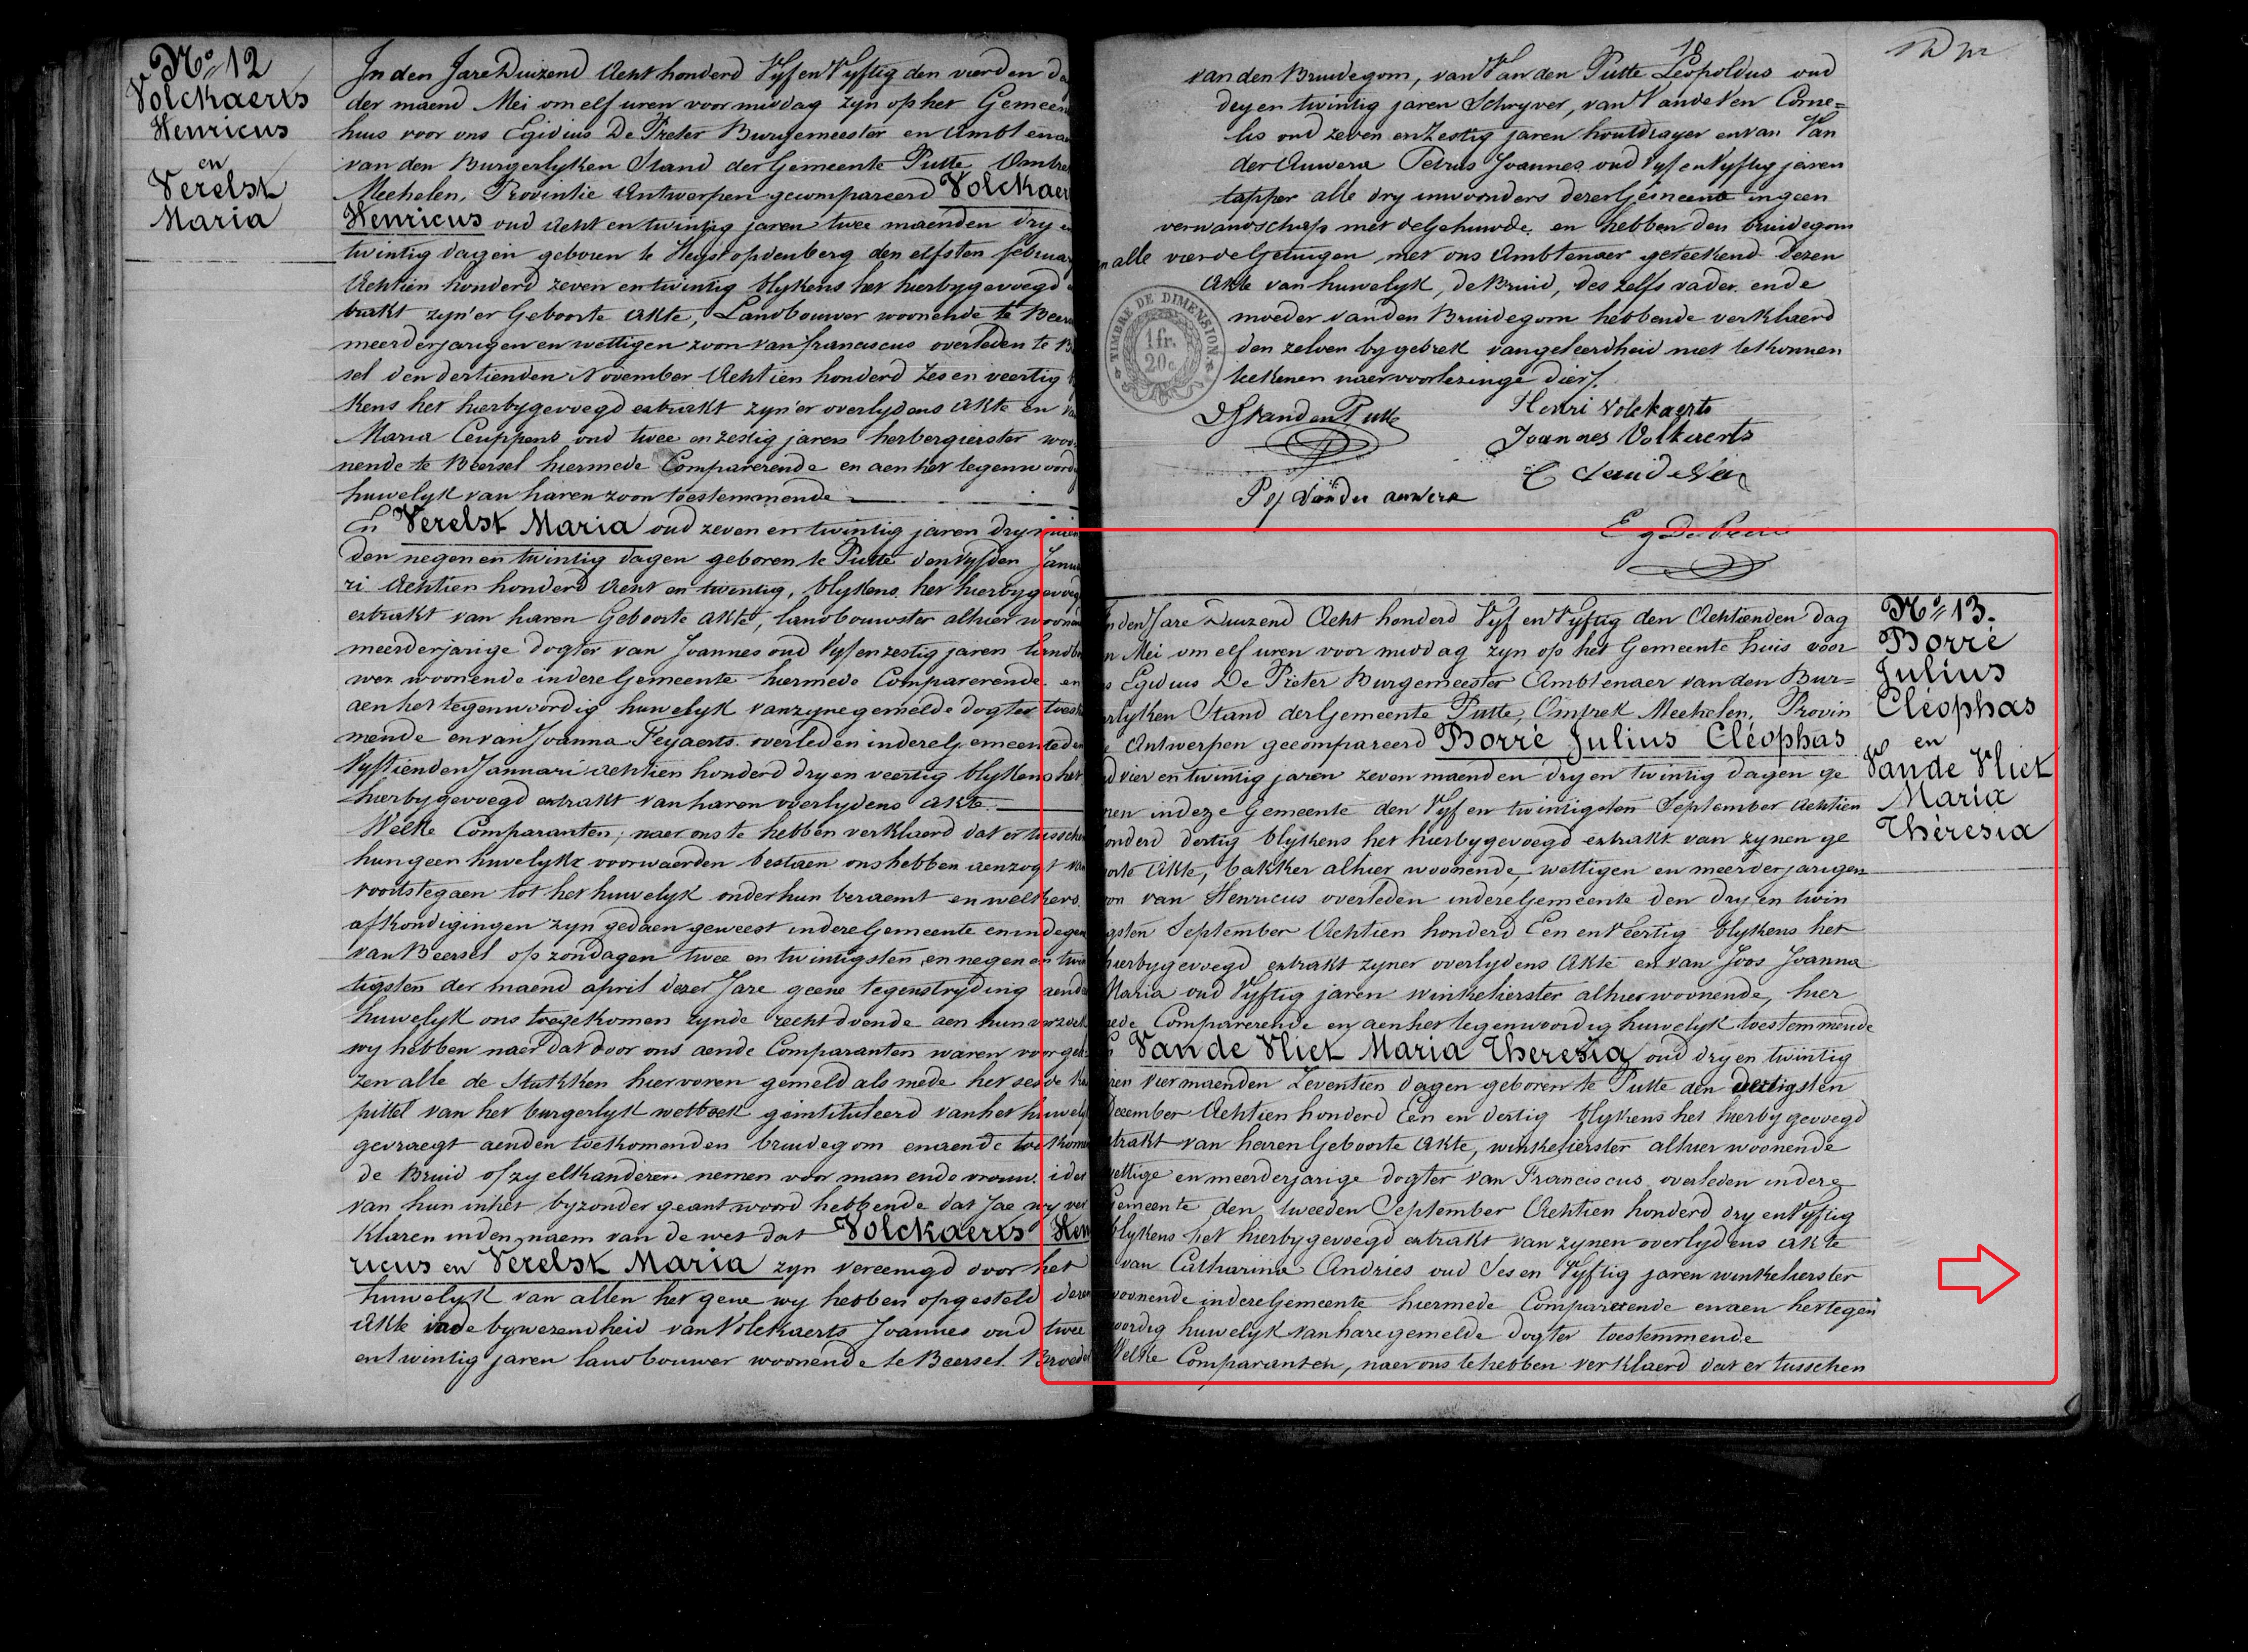 No 12
Volckaerts
Henricus
en
Verelst
Maria
In den Jare Duizend Acht honderd Vyf en Vyftig den vierden da
der maend Mei om elf uren voor middag zyn op het Gemeen
huis voor ons Egidius De Preter Burgemeester en Ambtena
van den Burgerlyken Stand der Gemeente Putte, Ombre
Mechelen, Provintie Antwerpen gecompareerd Volckaer
Henricus oud Acht en twintig jaren twee maenden dry e
twintig dagen geboren te Heyst op den berg den elfsten februa
Achtien honderd zeven en twintig blykens het hierbygevoegd
trakt zyn'er Geboorte Akte, Landbouwer woonende te Beers
meerderjarigen en wettigen zoon van franciscus overleden te B
sel den dertienden November Achtien honderd Zes en veertig
kens het hierbygevoegd extrakt zyn'er overlydens Akte en va
Maria Ceuppens oud twee en zestig jaren herbergierster woo
nende te Beersel hiermede Comparerende en aen het tegenwoord
huwelyk van haren zoon toestemmende
En Verelst Maria oud zeven en twintig jaren dry maen
den negen en twintig dagen geboren te Putte den vyfden Janu
ri Achtien honderd Acht en twintig, blykens het hierbygevoegd
extrakt van haren Geboorte Akte, landbouwster alhier woonend
meerderjarige dogter van Joannes oud Vyf en zestig jaren landbo
wer woonende in dere Gemeente hiermede Comparerende en
aen het tegenwoordig huwelyk van zyne gemelde dogter toest
mende en van Joanna Feyaerts overleden in dere Gemeente den
Vyftienden Januari Achtien honderd dry en veertig blykens het
hierbygevoegd extrakt van haren overlydens Akte
Welke Comparanten, naer ons te hebben verklaerd dat er tussche
hun geen huwelyks voorwaerden bestaen ons hebben aenzogt van
voorts te gaen tot het huwelyk onder hun beraemt en welkers
afkondigingen zyn gedaen geweest in dere Gemeente en in degen
van Beersel op zondagen twee en twintigsten en negen en twin
tigsten der maend april dezer Jare geene tegenstryding aen da
huwelyk ons toegekomen zynde recht doende aen hun verzoek
wy hebben naer dat door ons aen de Comparanten waren voorgele
zen alle de Stukken hiervoren gemeld als mede het sesde ka
pittel van het burgerlyk wetboek geintituleerd van het huwely
gevraegt aen den toekomenden bruidegom en aen de toekomen
de Bruid of zy elkanderen nemen voor man ende vrouw. ider
van hun in het byzonder geantwoord hebbende dat Jae wy ver
klaren in den naem van de wet dat Volckaerts Hen
ricus en Verelst Maria zyn vereenigd door het
huwelyk van allen het gene wy hebben opgesteld deren
Akte in de bywezendheid van Volckaerts Joannes oud twee
en twintig jaren landbouwer woonende te Beersel Broeder
18
van den Bruidegom, van Van den Putte Leopoldus oud
dry en twintig jaren Schryver, van Vande Ven Corne=
lis oud zeven en Zestig jaren houtdrager en van Van
der Auwera Petrus Joannes oud Vyf en Vyftig jaren
tapper alle dry inwoonders dezer Gemeente in geen
verwandschap met de Gehuwde, en hebben den bruidegom
n alle vier de Getuigen met ons Ambtenaer geteekend dezen
Akte van huwelyk, de Bruid, des zelfs vader ende
moeder van den Bruidegom hebbende verklaerd
den zelven by gebrek van geleerdheid niet te konnen
teekenen naer voorlezinge dier/.
TIMBRE DE DIMENSION
1 fr.
20c
Henri Volckaerts
Joannes Volkaerts
P J Vander auwera
No 13.
Borré
Julius
Cléophas
en
Vande Vliet
Maria
Thèresia
n den Jare Duizend Acht honderd Vyf en Vyftig den Achtienden dag
n Mei om elf uren voor middag zyn op het Gemeente huis voor
s Egidius De Preter Burgemeester Ambtenaer van den Bur=
erlyken Stand der Gemeente Putte, Ombrek Mechelen, Provin
e Antwerpen gecompareerd Borré Julius Cléophas
d vier en twintig jaren zeven maenden dry en twintig dagen ge
ren in deze Gemeente den Vyf en twintigsten September Achtien
onderd dertig blykens het hierbygevoegd extrakt van zynen ge
orte Akte, bakker alhier woonende, wettigen en meerderjarigen
on van Henricus overleden in dere Gemeente den dry en twin
gsten September Achtien honderd Een en Veertig blykens het
hierbygevoegd extrakt zyner overlydens Akte en van Joos Joanna
Maria oud Vyftig jaren winkelierster alhier woonende, hier
mede Comparerende en aen het tegenwoordig huwelyk toestemmende
n Vande Vliet Maria Theresia oud dry en twintig
ren vier maenden Zeventien dagen geboren te Putte den dertigsten
December Achtien honderd Een en dertig blykens het hierbygevoegd
trakt van haren Geboorte Akte, winkelierster alhier woonende
wettige en meerderjarige dogter van Franciscus overleden in dere
Gemeente den tweeden September Achtien honderd dry en Vyftig
blykens het hierbygevoegd extrakt van zynen overlydens Akte
van Catharina Andries oud Ses en Vyftig jaren winkelierster
woonende in dere Gemeente hiermede Comparerende en aen het tegen
woordig huwelyk van hare gemelde dogter toestemmende
Welke Comparanten, naer ons te hebben verklaerd dat er tusschen